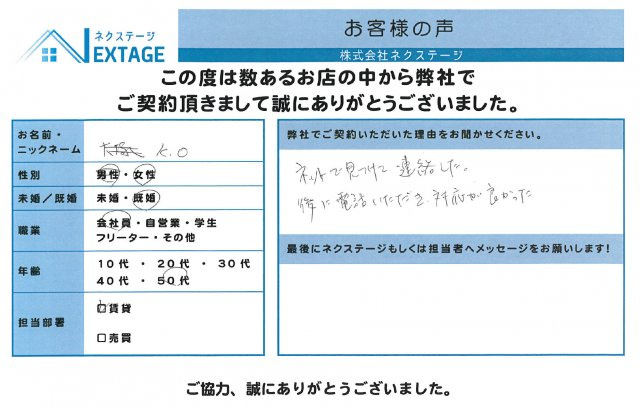 ネクステージ
NEXTAGE
お客様の声
株式会社ネクステージ
この度は数あるお店の中から弊社で
ご契約頂きまして誠にありがとうございました。
お名前・
ニックネーム
K.O
性別
男性・女性
未婚/既婚
未婚・既婚
職業
会社員・自営業・学生
フリーター・その他
年齢
10代 ・ 20代 ・ 30代
40代 ・ 50代
担当部署
□賃貸
□売買
弊社でご契約いただいた理由をお聞かせください。
ネットで見つけて連絡した。
後に電話いただき、対応が良かった
最後にネクステージもしくは担当者へメッセージをお願いします!
ご協力、誠にありがとうございました。